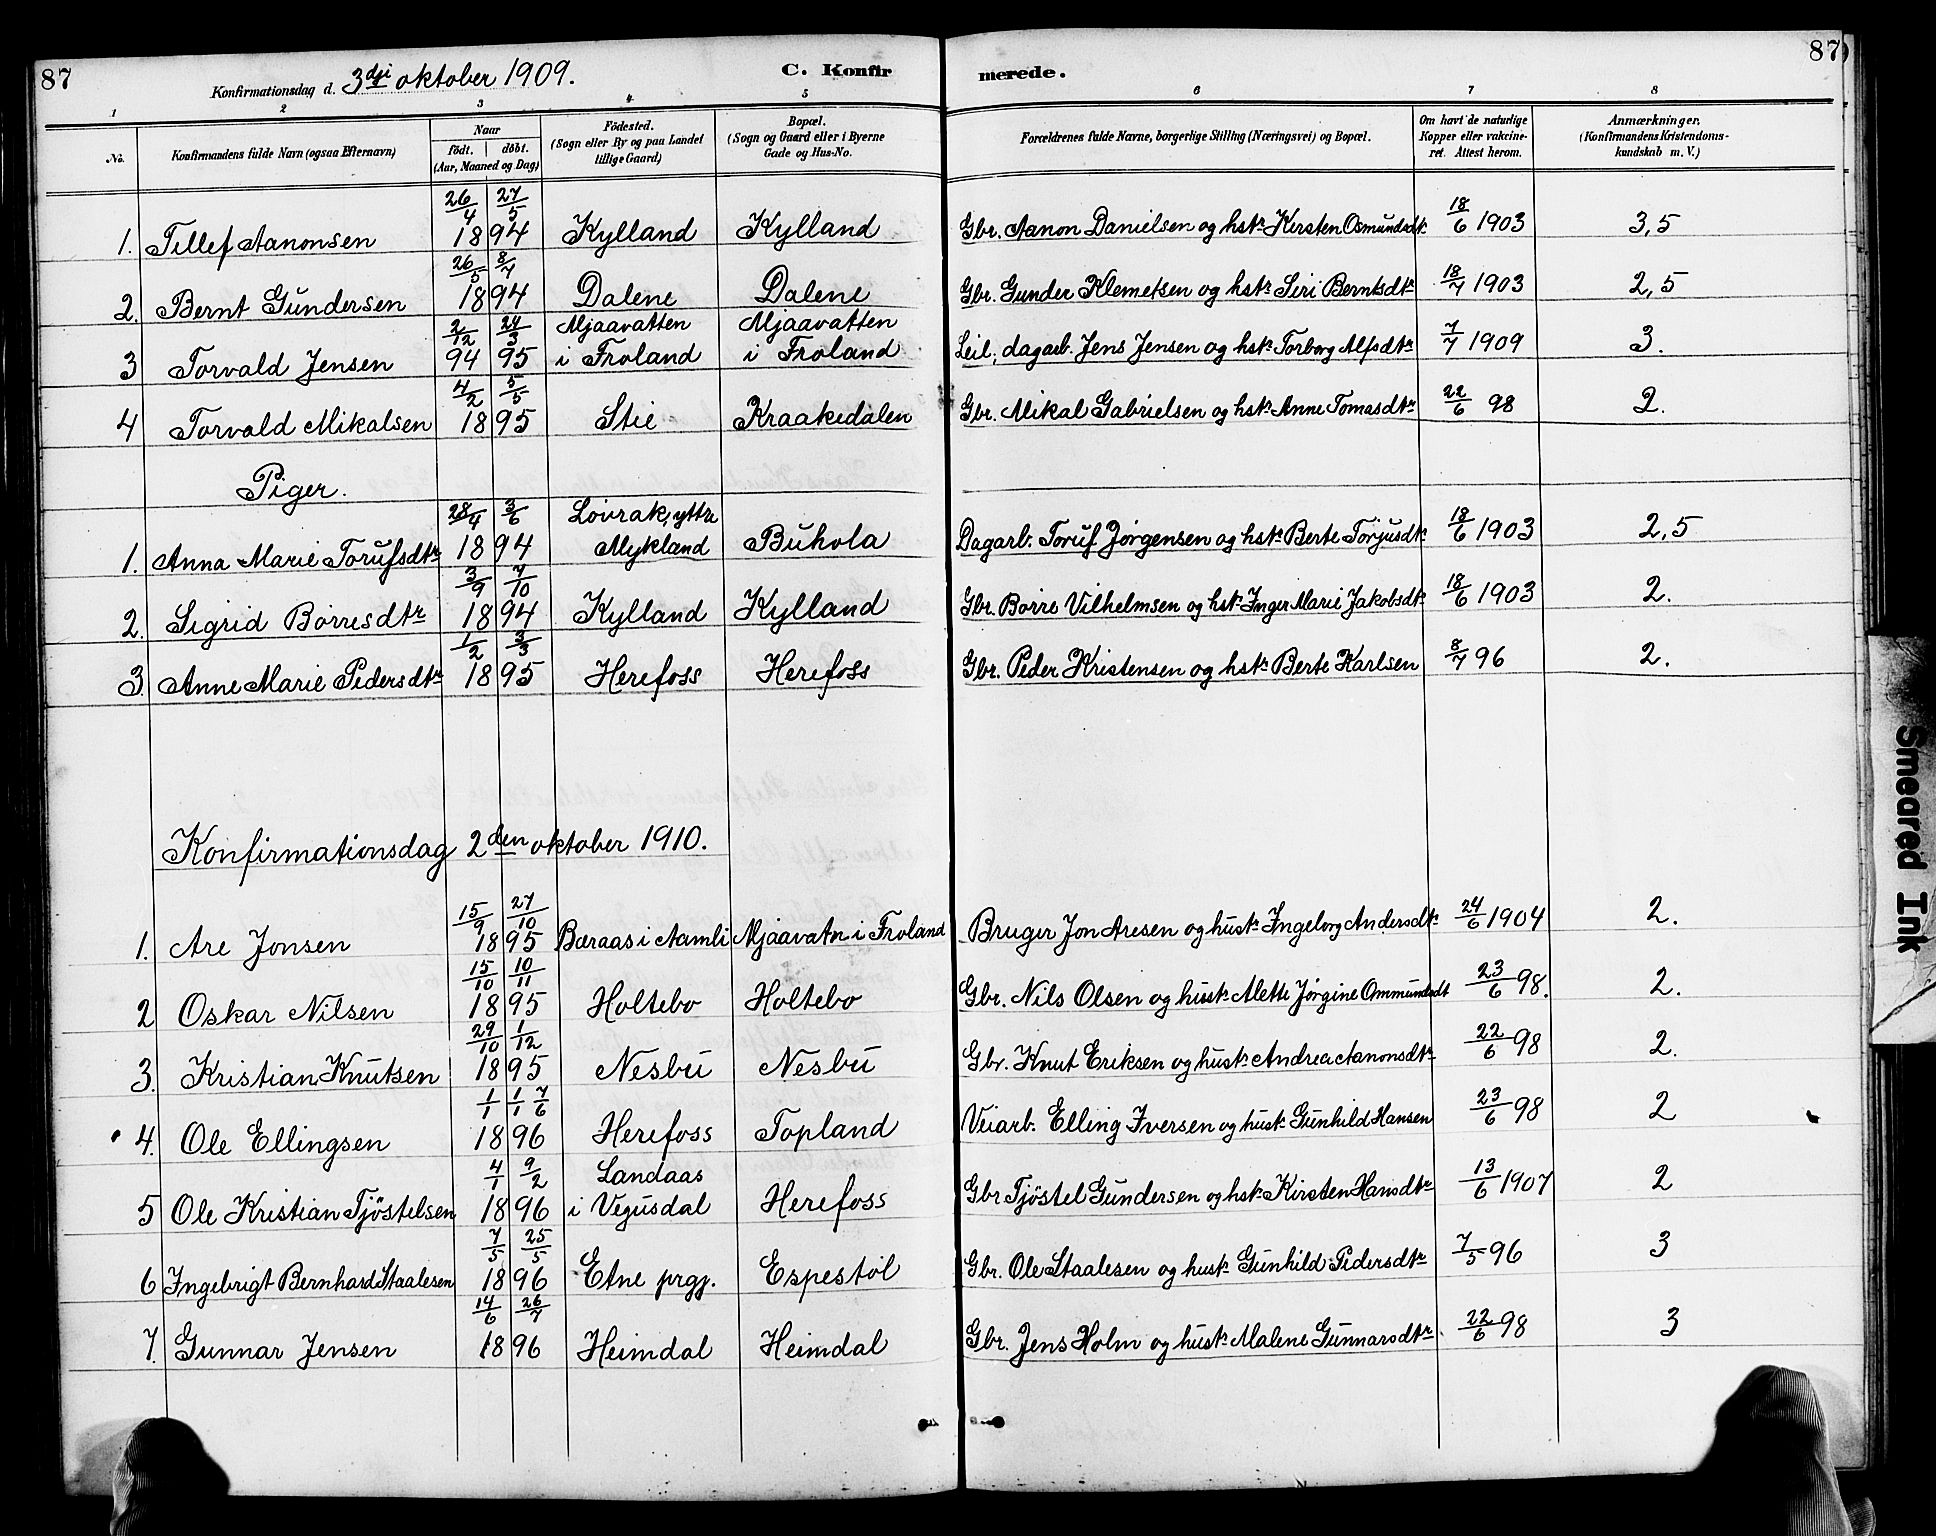 87
Konfirmationsdag d. 3dji oktober 1909.
C. Konfirmerede.
87
1 2 3 4 5 6 7 8
No.
Konfirmandens fulde Navn (ogsaa Efternavn)
Naar
födt. döbt.
(Aar, Maaned og Dag)
Födested.
(Sogn eller By og paa Landet
tillige Gaard)
Bopæl.
(Sogn og Gaard eller i Byerne
Gade og Hus-No.
Forældrenes fulde Navne, borgerlige Stilling (Næringsvei) og Bopæl.
Om havt de naturlige
Kopper eller vaccine-
ret. Attest herom.
Anmærkninger.
(Konfirmandens Kristendoms-
kundskab m. V.)
1. Tellef Aanonsen 26/4 27/5 1894 Kylland Kylland Gbr. Aanon Danielsen og hstr Kirsten Osmundsdtr 18/6 1903 3,5
2. Bernt Gundersen 26/5 8/7 1894 Dalene Dalene Gbr. Gunder Klemetsen og hstr Siri Berntsdtr 18/7 1903 2,5
3 Torvald Jensen 2/12 94 24/3 95 Mjaavatten i Froland Mjaavatten i Froland Leil, dagarb. Jens Jensen og hstr Torborg Alfsdtr 7/7 1909 3.
4 Torvald Mikalsen 4/2 5/5 1895 Stie Kraakedalen Gbr. Mikal Gabrielsen og hstr Anne Tomasdtr 22/6 98 2.
Piger.
1. Anna Marie Torufsdtr 28/4 3/6 1894 Lövrak, yttre Mykland Buhola Dagarb. Toruf Jørgensen og hstr Berte Torjusdtr 18/6 1903 2,5
2. Sigrid Börresdtr 3/9 7/10 1894 Kylland Kylland Gbr. Börre Vilhelmsen og hstr Inger Marie Jakobsdtr 18/6 1903 2.
3. Anne Marie Pedersdtr 1/2 3/3 1895 Herefoss Herefoss Gbr. Peder Kristensen og hstr Berte Karlsen 8/7 96 2.
Konfirmationsdag 2den oktober 1910.
1. Are Jonsen 15/9 27/10 1895 Bæraas i Aamli Mjaavatn i Froland Bruger Jon Aresen og hustr Ingeborg Andersdtr 24/6 1904 2.
2 Oskar Nilsen 15/10 10/11 1895 Holtebo Holtebo Gbr. Nils Olsen og hustr Alette Jørgine Ommundsdt 23/6 98. 2.
3. Kristian Knutsen 29/10 1/12 1895 Nesbu Nesbu Gbr. Knut Eriksen og hustr Andrea Aanonsdtr 22/6 98 2.
4. Ole Ellingsen 1/1 1/1 7/6 1896 Herefoss Topland Veiarb. Elling Iversen og hustr Gunhild Hansen 23/6 98 2
5 Ole Kristian Tjöstelsen 4/1 9/2 1896 Landaas i Vegusdal Herefoss Gbr Tjöstel Gundersen og hstr Kirsten Hansdtr 13/6 1907 2
6 Ingebrigt Bernhard Staalesen 7/5 25/5 1896 Etne prgj. Espestöl Gbr. Ole Staalesen og hustr Gunhild Pedersdtr 7/5 96 3
7. Gunnar Jensen 14/6 26/7 1896 Heimdal Heimdal Gbr. Jens Holm og hustr Malene Gunnarsdtr 22/6 98 3
Smeared Ink